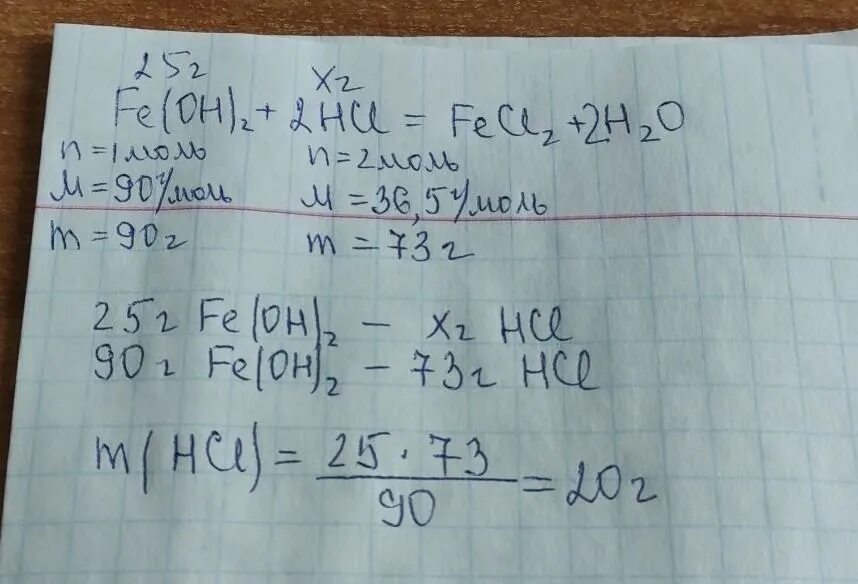 25г хг
Fe(OH)₂ + 2HCl = FeCl₂ + 2H₂O
n = 1моль n = 2моль
M = 90г/моль M = 36,5г/моль
m = 90г m = 73г
25г Fe(OH)₂ – хг HCl
90г Fe(OH)₂ – 73г HCl
m(HCl) = 25 · 73 / 90 = 20г